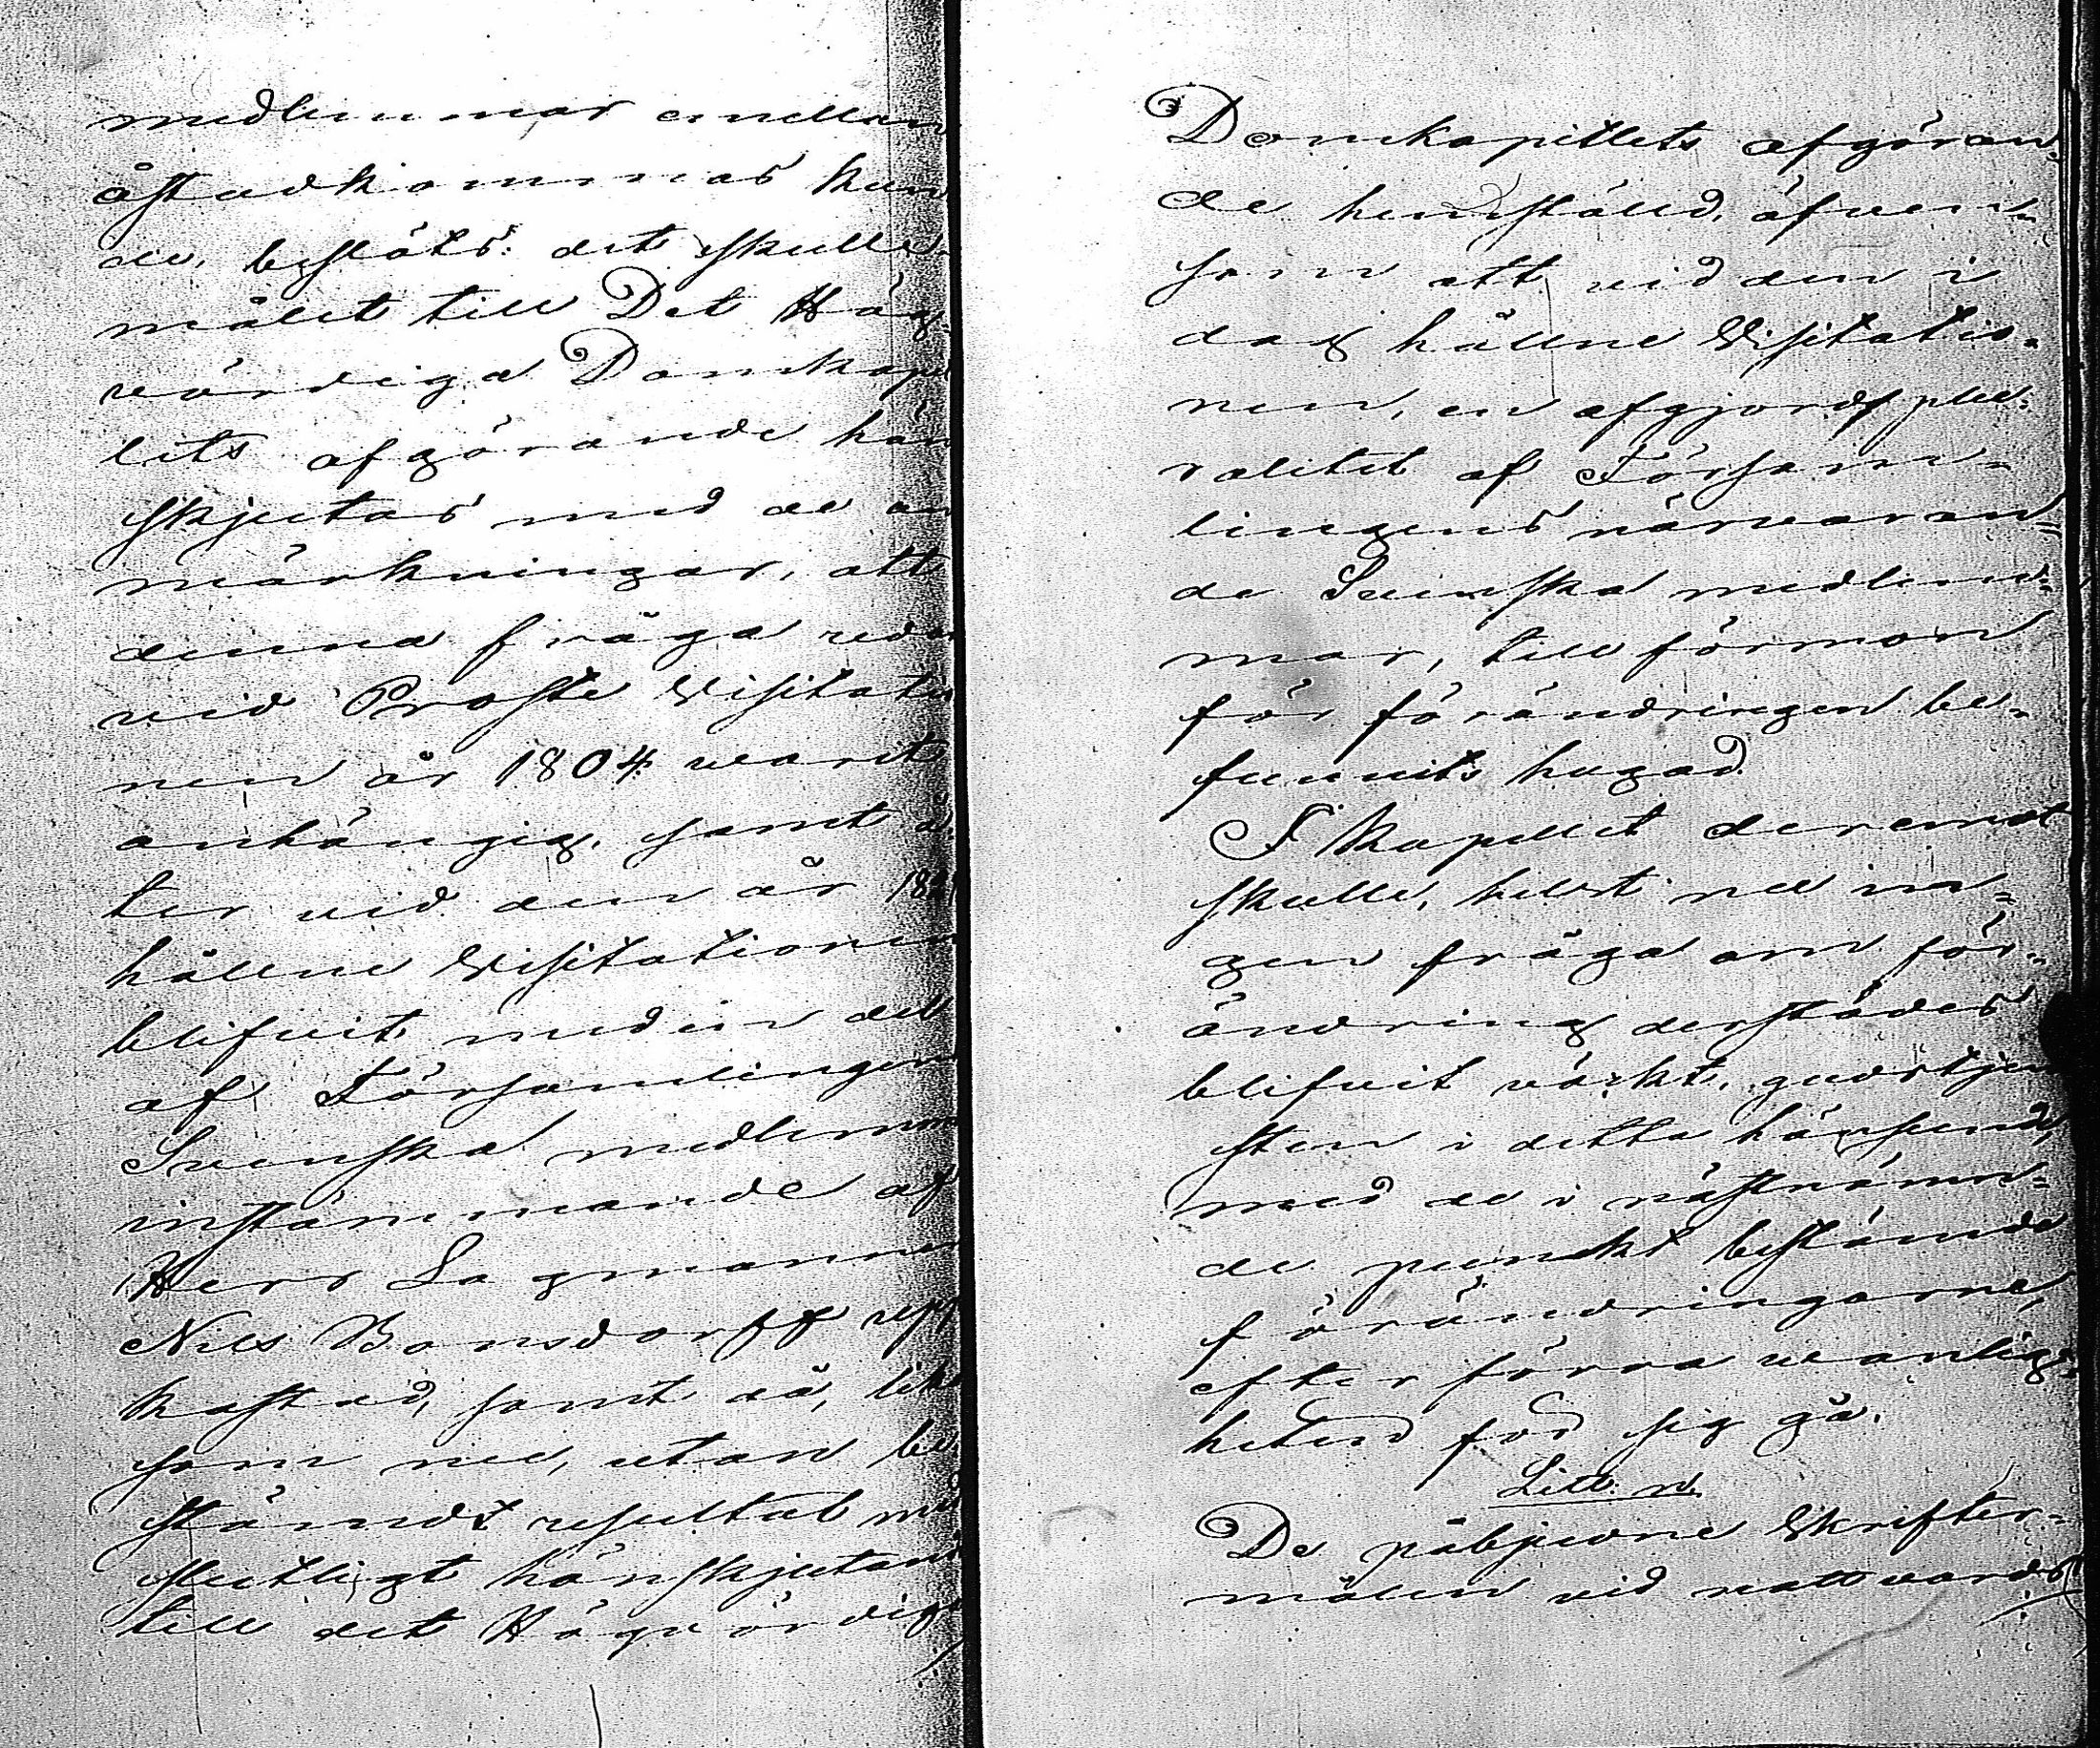 medlemmar emellan
åstadkommas kun
de, beslöts: det skulle
målet till Det Hög
vördiga Domkapi
lets afgörande hän
skjutas med de an
märkningar, att
denna fråga redan
vid Proste Visitatio
nen år 1804 varit
anhängig, samt å
ter vid den år
hållne Visitationen
blifvit med en del
af Församlingens
Svenska medlemmar
instämmande af
Herr Lagmannen
Nils Bonsdorff upp
kastad, samt då, lik
som nu, utan be
stämdt resultat
slutligt hänskjutan
till det Högvördiga
Domkapitlets afgöran=
de hemstäld, äfven=
som att vid den i
dag hållne Visitatio=
nen, en afgjord plu=
ralitet af Försam=
lingens närvaran=
de Svenska medlem=
mar, till förmon
för förändringen be=
funnits hugad.
I Kapellet deremot
skulle, helst nu in=
gen fråga om för=
ändring derstädes
blifvit väckt, gudstjen
sten i detta hänseende,
med de i nästnämn=
de punkt bestämda
förändringarne,
efter förra vanlig=
heten för sig gå.
Litt. n.
De påbjudne Skrifter=
målen vid nattvards